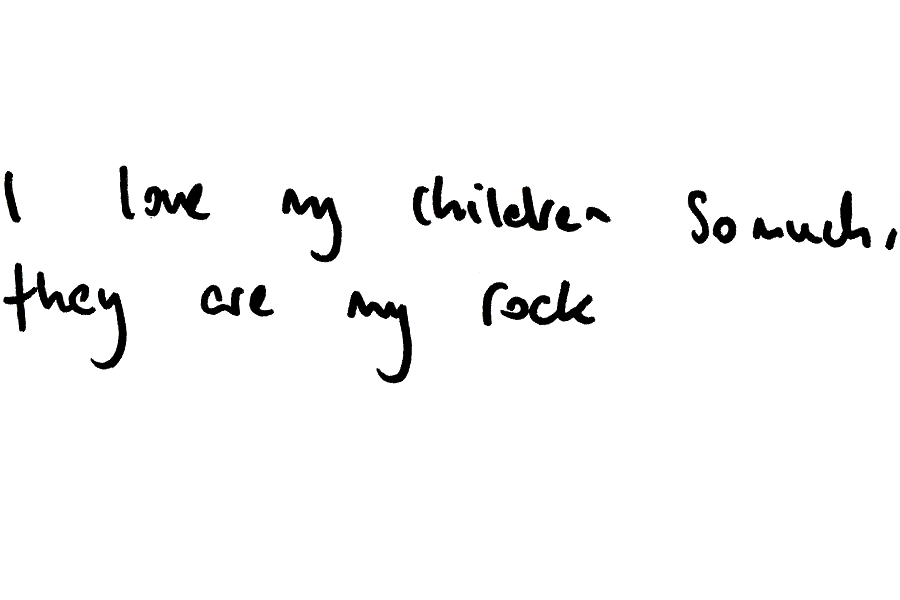 I love my children so much,
they are my rock